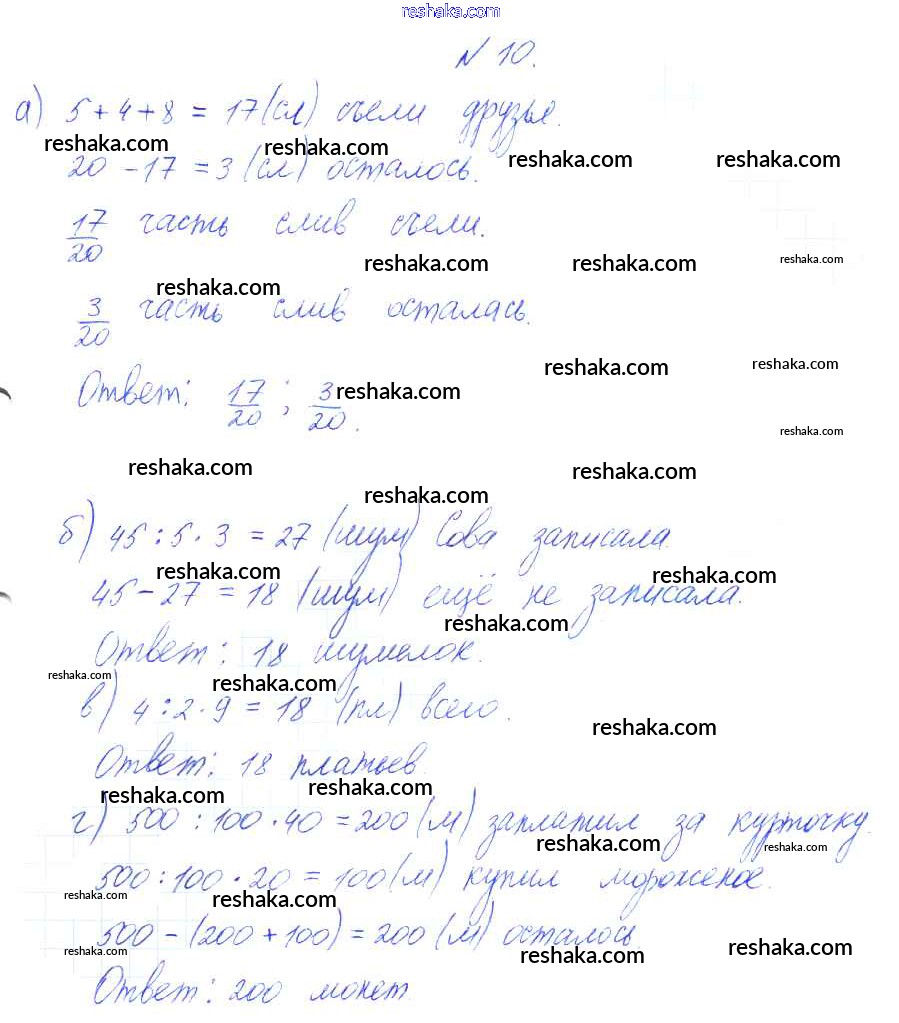 reshaka.com
№ 10.
а) 5 + 4 + 8 = 17 (сл) съели друзья.
reshaka.com reshaka.com reshaka.com reshaka.com
20 - 17 = 3 (сл) осталось.
17/20 часть слив съели.
reshaka.com reshaka.com reshaka.com
reshaka.com
3/20 часть слив осталась.
reshaka.com reshaka.com
Ответ: 17/20 ; 3/20.
reshaka.com
reshaka.com
reshaka.com reshaka.com
reshaka.com
б) 45 : 5 · 3 = 27 (шум) Сова записала.
reshaka.com reshaka.com
45 - 27 = 18 (шум) ещё не записала.
reshaka.com
Ответ: 18 шумелок.
reshaka.com reshaka.com
в) 4 : 2 · 9 = 18 (пл) всего.
reshaka.com
Ответ: 18 платьев.
reshaka.com reshaka.com
г) 500 : 100 · 40 = 200 (м) заплатил за курточку.
reshaka.com reshaka.com
500 : 100 · 20 = 100 (м) купил мороженое.
reshaka.com reshaka.com
500 - (200 + 100) = 200 (м) осталось
reshaka.com reshaka.com reshaka.com
Ответ: 200 монет.